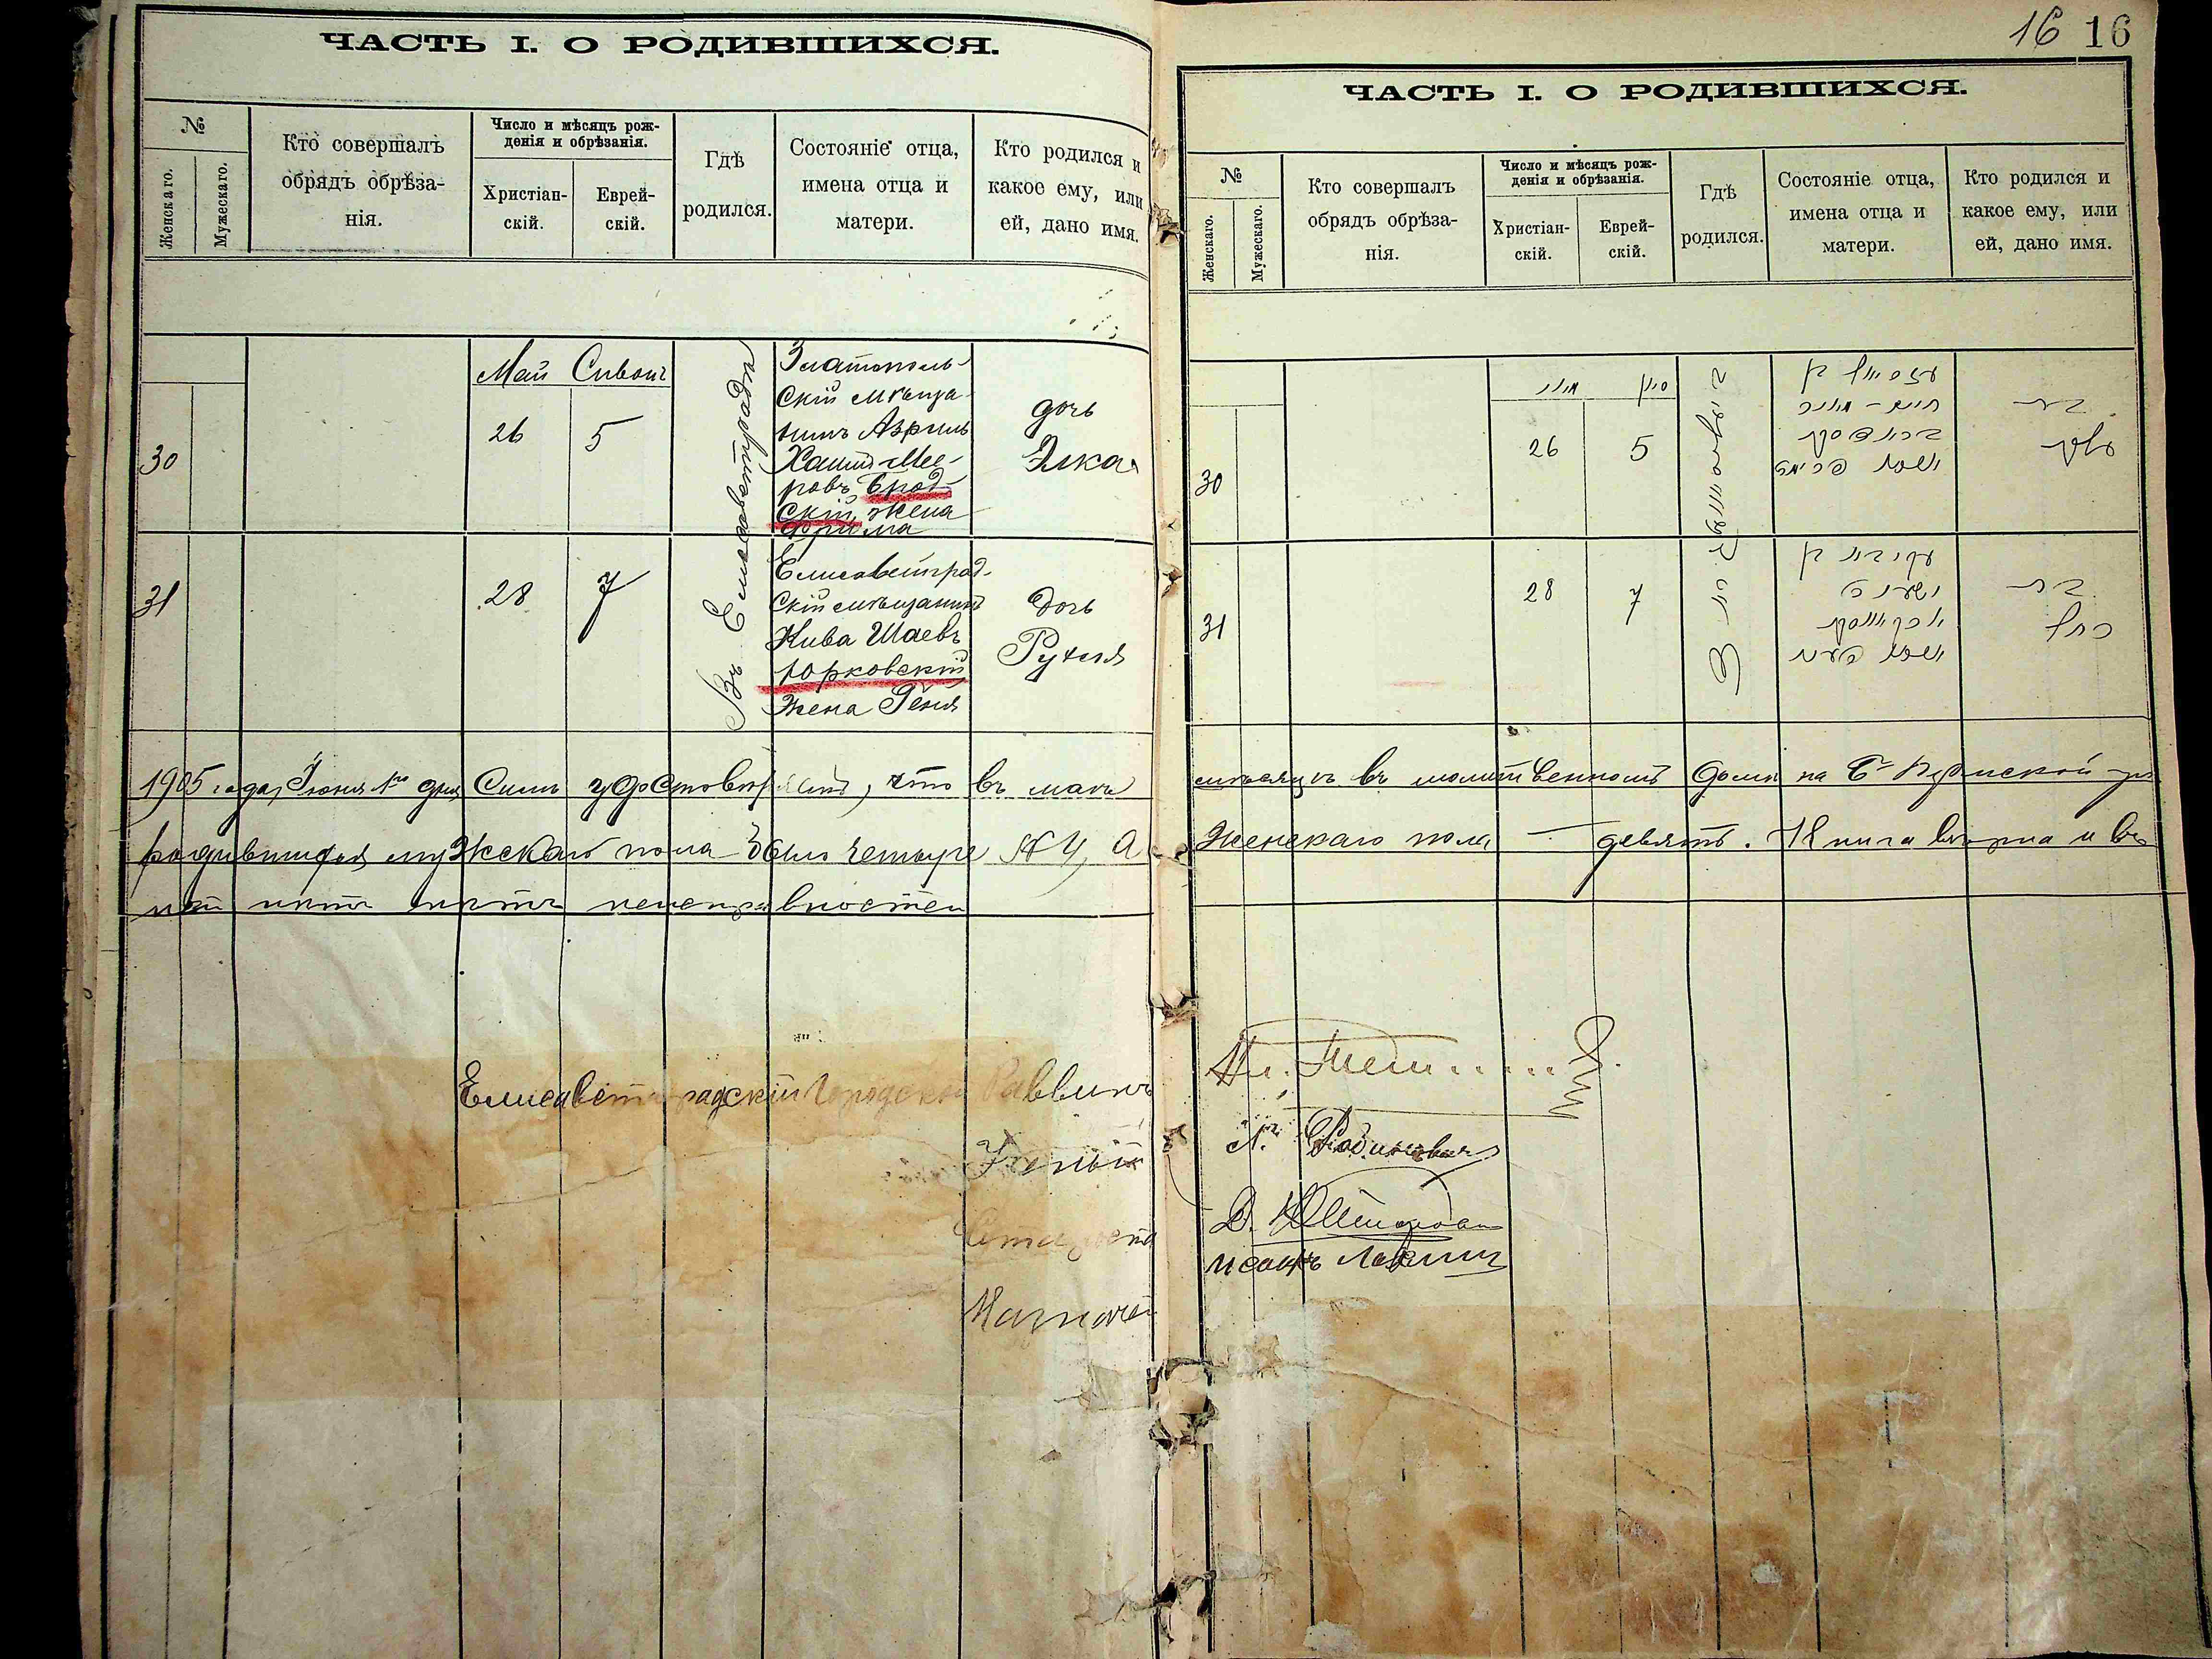 ЧАСТЬ I. О РОДИВШИХСЯ.
№
Женскаго.
Мужескаго.
Кто совершалъ
обрядъ обрѣза-
нія.
Число и мѣсяцъ рож-
денія и обрѣзанія.
Христіан-
скій.
Еврей-
скій.
Гдѣ
родился.
Состояніе отца,
имена отца и
матери.
Кто родился и
какое ему, или
ей, дано имя.
Май Сивонъ
30
26
5
Въ Елисаветградѣ
Златополь-
скій мѣща-
нинъ Азриль
Хаимъ-Мее-
ровъ Брод-
скій, жена
Фрима
дочь
Элка
31
28
7
Елисаветград-
скій мѣщанинъ
Кива Шаевъ
Юрковскій
Жена Геня
Дочь
Рухля
1905 года, Іюня 1го дня Симъ удостовѣряемъ, что въ маѣ
родившихся мужскаго пола было четыре № 4, а
нѣтъ неисправностей
Елисаветградскій Городской Раввинъ
Ученый
Староста
Казначей
16 16
ЧАСТЬ I. О РОДИВШИХСЯ.
№
Женскаго.
Мужескаго.
Кто совершалъ
обрядъ обрѣза-
нія.
Число и мѣсяцъ рож-
денія и обрѣзанія.
Христіан-
скій.
Еврей-
скій.
Гдѣ
родился.
Состояніе отца,
имена отца и
матери.
Кто родился и
какое ему, или
ей, дано имя.
מאי סיון
30
26
5
חיים-מאיר
בראדסקי
בת
עלקא
31
28
7
יורקאווסקי
בת
רחל
мѣсяцѣ въ молитвенномъ домѣ на Б. Пермской ул
Женскаго пола — девять. Книга вѣрна и въ
Л. Рабиновичъ
Исаакъ